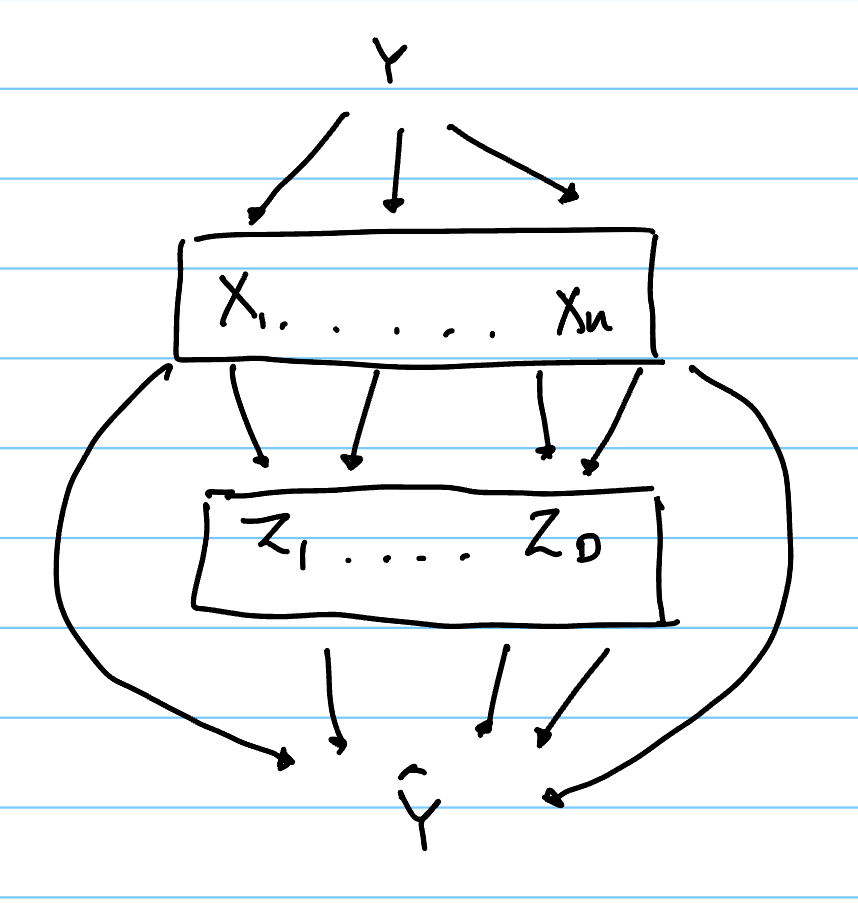 Y
X₁ . . . . . Xn
Z₁ . . . . . Z_D
Ŷ